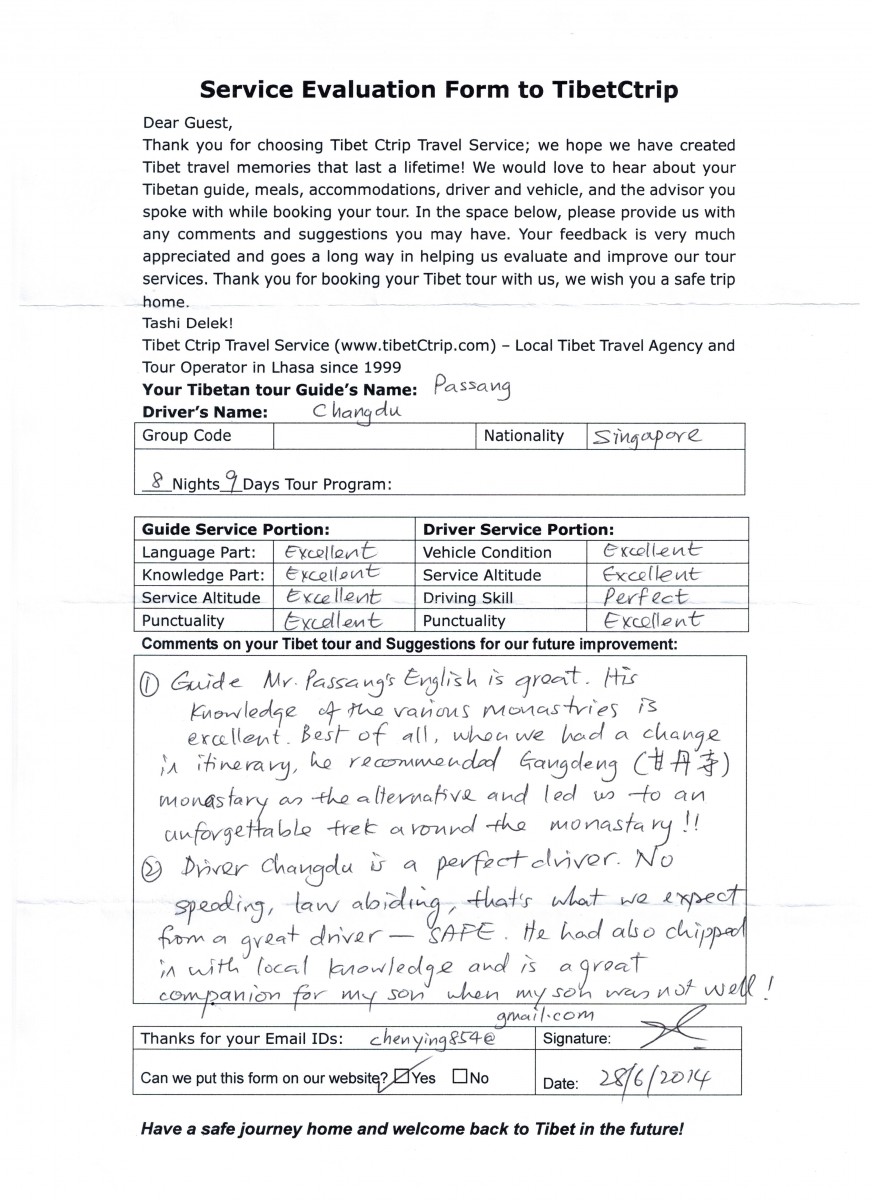 Service Evaluation Form to TibetCtrip
Dear Guest,
Thank you for choosing Tibet Ctrip Travel Service; we hope we have created
Tibet travel memories that last a lifetime! We would love to hear about your
Tibetan guide, meals, accommodations, driver and vehicle, and the advisor you
spoke with while booking your tour. In the space below, please provide us with
any comments and suggestions you may have. Your feedback is very much
appreciated and goes a long way in helping us evaluate and improve our tour
services. Thank you for booking your Tibet tour with us, we wish you a safe trip
home.
Tashi Delek!
Tibet Ctrip Travel Service (www.tibetCtrip.com) – Local Tibet Travel Agency and
Tour Operator in Lhasa since 1999
Your Tibetan tour Guide's Name: Passang
Driver's Name: Changdu
Group Code Nationality Singapore
8 Nights 9 Days Tour Program:
Guide Service Portion: Driver Service Portion:
Language Part: Excellent Vehicle Condition Excellent
Knowledge Part: Excellent Service Altitude Excellent
Service Altitude Excellent Driving Skill Perfect
Punctuality Excellent Punctuality Excellent
Comments on your Tibet tour and Suggestions for our future improvement:
① Guide Mr. Passang's English is great. His
knowledge of the various monastries is
excellent. Best of all, when we had a change
in itinerary, he recommended Gangdeng (甘丹寺)
monastary as the alternative and led us to an
unforgettable trek around the monastary!!
② Driver Changdu is a perfect driver. No
speeding, law abiding, that's what we expect
from a great driver — SAFE. He had also chipped
in with local knowledge and is a great
companion for my son when my son was not well!
gmail.com
Thanks for your Email IDs: chenying854@ Signature:
Can we put this form on our website? ☑Yes ☐No Date: 28/6/2014
Have a safe journey home and welcome back to Tibet in the future!